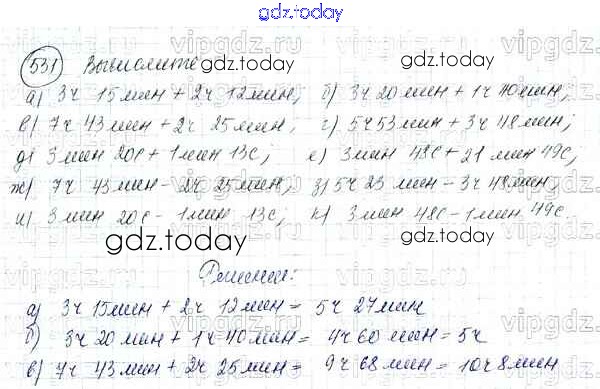 gdz.today
531 Вычислите gdz.today
а) 3ч 15мин + 2ч 12мин; б) 3ч 20мин + 1ч 40мин;
в) 7ч 43мин + 2ч 25мин; г) 5ч 53мин + 3ч 48мин;
д) 3мин 20с + 1мин 13с; е) 3мин 48с + 21мин 49с;
ж) 7ч 43мин - 2ч 25мин; з) 5ч 23мин - 3ч 48мин;
и) 3мин 20с - 1мин 13с; к) 3мин 48с - 1мин 49с.
gdz.today gdz.today
Решение:
а) 3ч 15мин + 2ч 12мин = 5ч 27мин
б) 3ч 20мин + 1ч 40мин = 4ч 60мин = 5ч
в) 7ч 43мин + 2ч 25мин = 9ч 68мин = 10ч 8мин